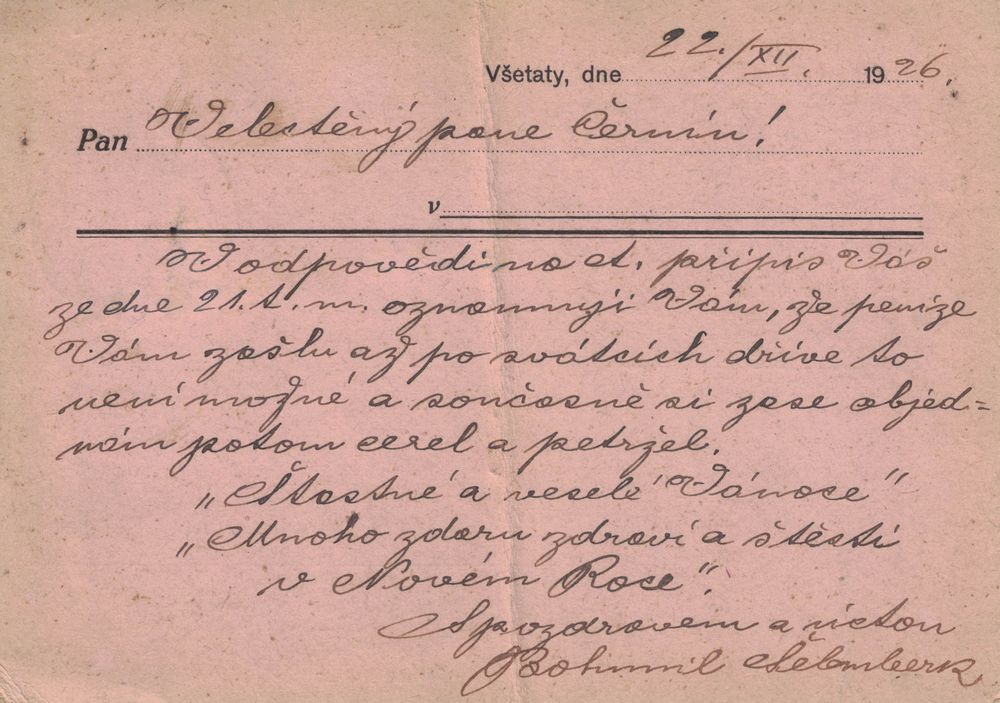 Všetaty, dne 22./XII. 1926.
Pan Velectěný pane Černín!
v
V odpovědi na ct. přípis Váš
ze dne 21. t. m. oznamuji Vám, že peníze
Vám zašlu až po svátcích dříve to
není možné a současně si zase objed=
nám potom cerel a petržel.
„Šťastné a veselé Vánoce"
„Mnoho zdaru zdraví a štěstí
v Novém Roce".
S pozdravem a úctou
Bohumil